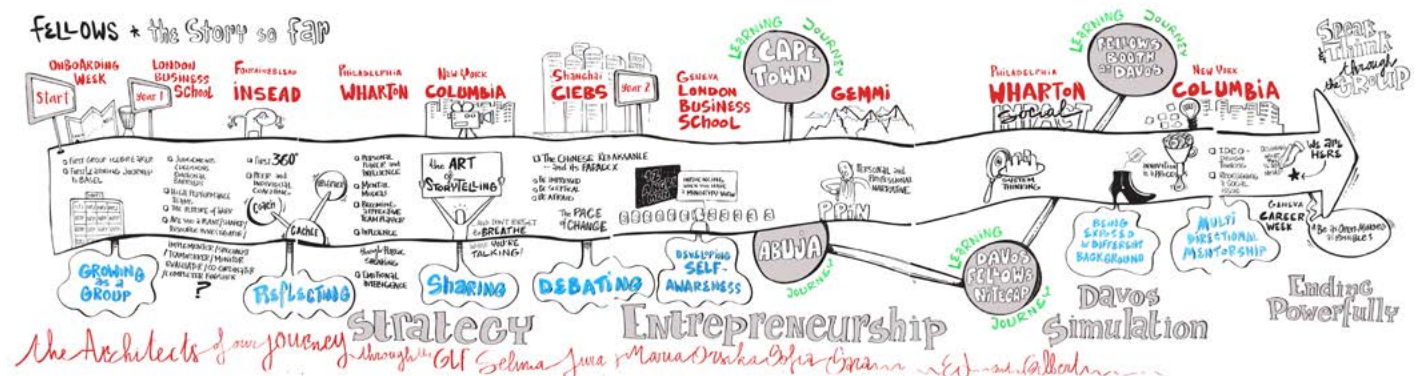 FELLOWS * the Story so far
ONBOARDING
WEEK
Start
LONDON
BUSINESS
SCHOOL
Year 1
FONTAINEBLEAU
INSEAD
PHILADELPHIA
WHARTON
NEW YORK
COLUMBIA
Shanghai
CIEBS
Year 2
GENEVA
LONDON
BUSINESS
SCHOOL
LEARNING JOURNEY
CAPE
TOWN
GEMMI
PHILADELPHIA
WHARTON
Social
IMPACT
LEARNING JOURNEY
FELLOWS
BOOTH
at DAVOS
NEW YORK
COLUMBIA
Speak
& Think
through
the GROUP
FIRST GROUP ICEBREAKER
FIRST LEARNING JOURNEY
to BASEL
HIGH PERFORMANCE
TEAMS
THE FUTURE of WORK
IMPLEMENTER/SPECIALIST
/TEAMWORKER/MONITOR
EVALUATOR/CO-ORDINATOR
/COMPLETER FINISHER
?
First 360°
PEER and
INDIVIDUAL
COACHING
Coach
COACHEE
OBSERVER
PERSONAL
POWER and
INFLUENCE
MENTAL
MODELS
BECOMING
SUPPORTIVE
TEAM PLAYER
INFLUENCE
through PUBLIC
SPEAKING
EMOTIONAL
INTELLIGENCE
the ART
of
STORYTELLING
AND DON'T FORGET
to BREATHE
WHILE YOU'RE
TALKING!
The CHINESE RENAISSANCE
... and its PARADOX
BE IMPRESSED
BE SKEPTICAL
BE AFRAID
The PACE
of CHANGE
12
ANGRY
MEN
INFLUENCING
WHEN YOU HAVE
a MINORITY VIEW
PERSONAL and
PROFESSIONAL
NARRATIVE
PPiN
SYSTEM
THINKING
INNOVATION
PRICE
IDEO-
DESIGN
THINKING
WE ARE
HERE
GENEVA
CAREER
WEEK
Be as OPEN-MINDED
as POSSIBLE
GROWING
as a
GROUP
REFLECTING
SHARING
DEBATING
DEVELOPING
SELF-
AWARENESS
ABUJA
JOURNEY
LEARNING
DAVOS
FELLOWS
NITECAP
JOURNEY
BEING
EXPOSED
to DIFFERENT
BACKGROUND
MULTI
DIRECTIONAL
MENTORSHIP
Strategy
Entrepreneurship
Davos
Simulation
Ending
Powerfully
the Architects of our journey through the GLF Selima Jura Maria Orsika Sofia
Gilbert